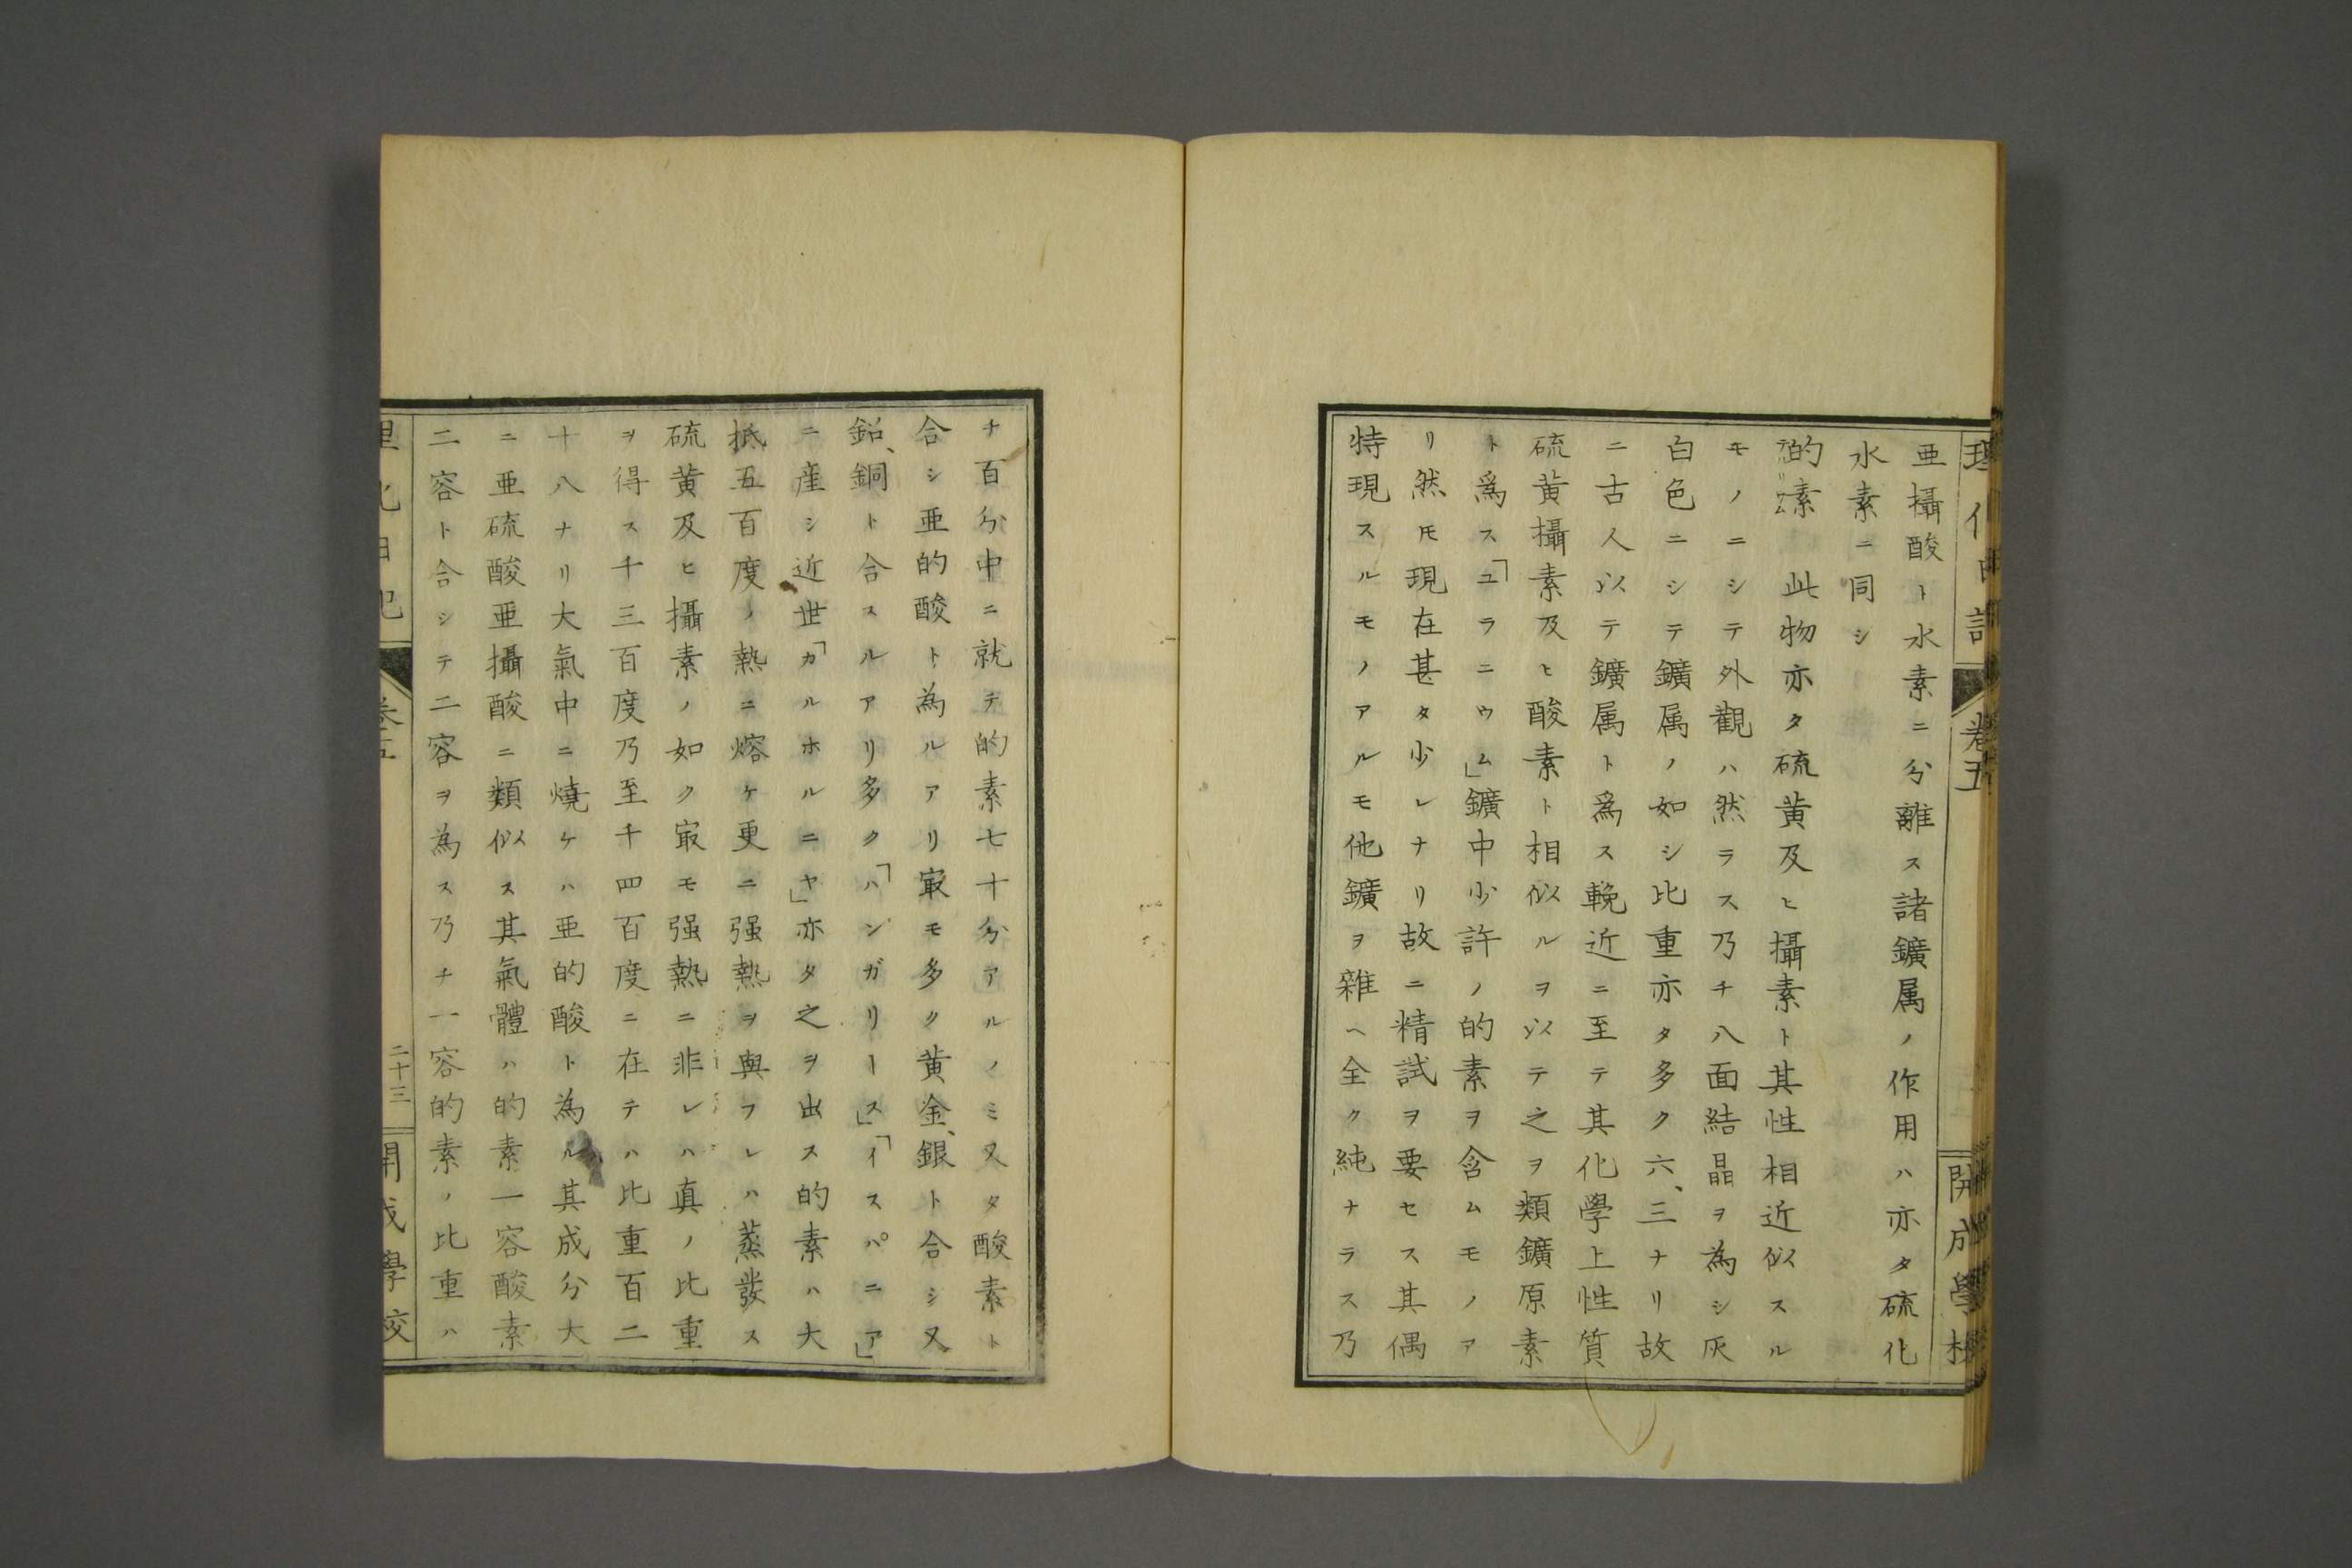 理化日記
卷五
開成學校
亜攝酸ト水素ニ分離ス諸鑛属ノ作用ハ亦タ硫化
水素ニ同シ
的素 此物亦タ硫黄及ヒ攝素ト其性相近似スル
モノニシテ外觀ハ然ラス乃チ八面結晶ヲ為シ灰
白色ニシテ鑛属ノ如シ比重亦タ多ク六、三ナリ故
ニ古人以テ鑛属ト爲ス輓近ニ至テ其化學上性質
硫黄攝素及ヒ酸素ト相似ルヲ以テ之ヲ類鑛原素
ト爲ス「ユラニウム」鑛中少許ノ的素ヲ含ムモノア
リ然モ現在甚タ少レナリ故ニ精試ヲ要セス其偶
特現スルモノアルモ他鑛ヲ雜ヘ全ク純ナラス乃
チ百分中ニ就テ的素七十分アルノミ又タ酸素ト
合シ亜的酸ト為ルアリ冣モ多ク黄金、銀ト合シ又
鉛、銅ト合スルアリ多ク「ハンガリース」「イスパニア」
ニ産シ近世「カルホルニヤ」亦タ之ヲ出ス的素ハ大
抵五百度ノ熱ニ熔ケ更ニ强熱ヲ與フレハ蒸發ス
硫黄及ヒ攝素ノ如ク冣モ强熱ニ非レハ真ノ比重
ヲ得ス千三百度乃至千四百度ニ在テハ比重百二
十八ナリ大氣中ニ燒ケハ亜的酸ト為ル其成分大
ニ亜硫酸亜攝酸ニ類似ス其氣體ハ的素一容酸素
二容ト合シテ二容ヲ為ス乃チ一容的素ノ比重ハ
理化日記
卷五
二十三
開成學校